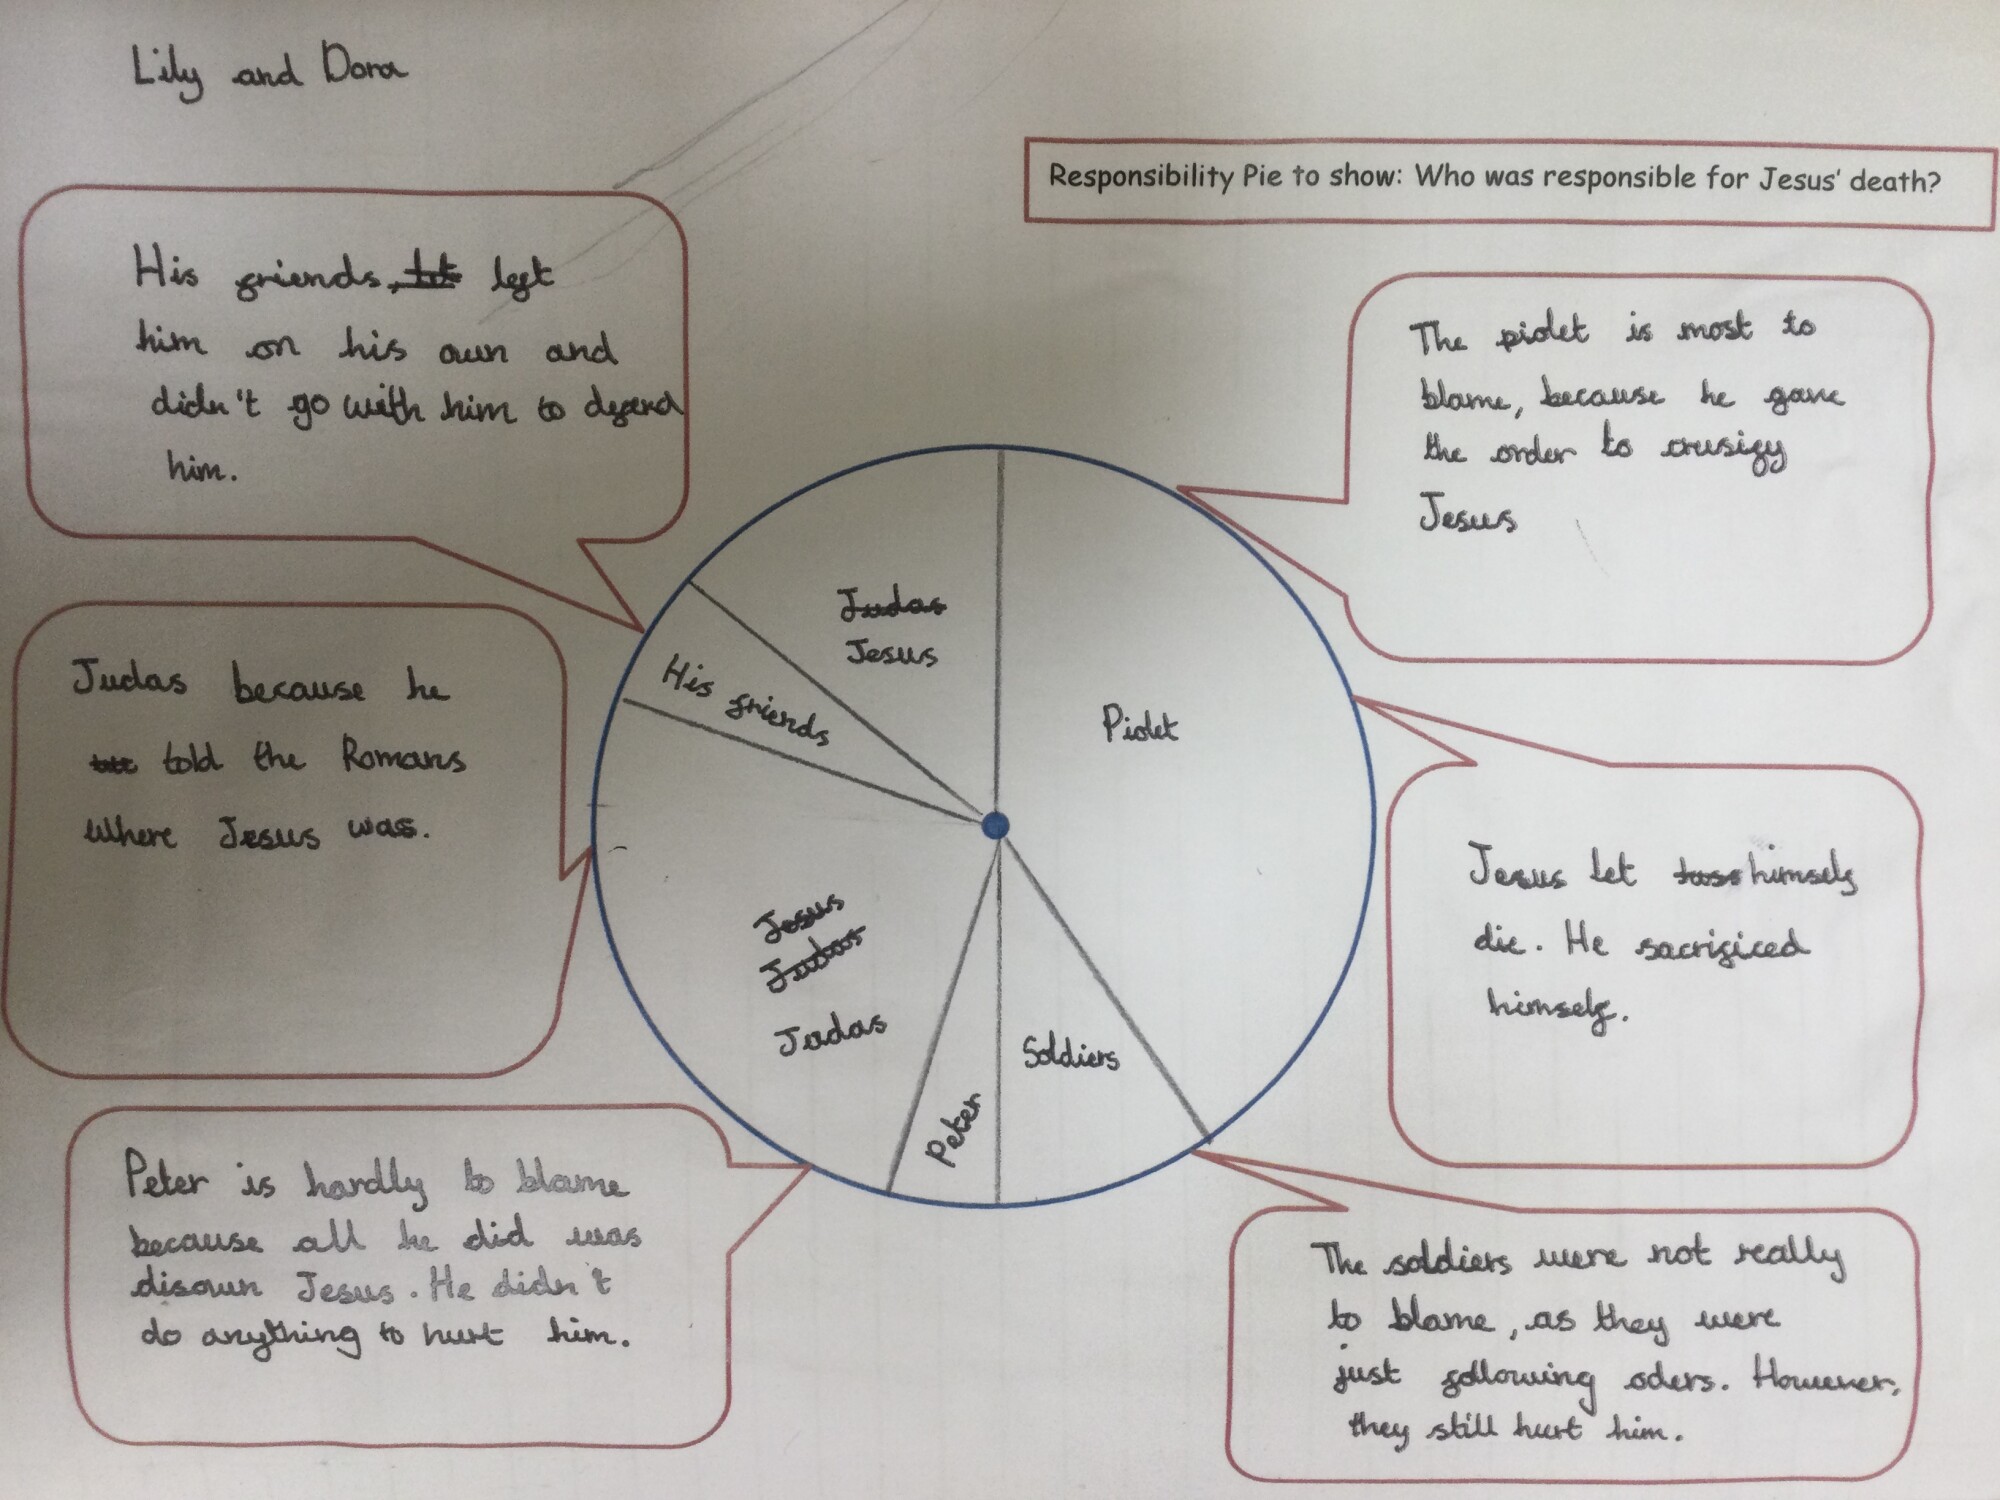 Lily and Dora
Responsibility Pie to show: Who was responsible for Jesus' death?
His friends, left
him on his own and
didn't go with him to defend
him.
The piolet is most to
blame, because he gave
the order to crusify
Jesus
Judas because he
told the Romans
where Jesus was.
Jesus let himself
die. He sacrificed
himself.
Peter is hardly to blame
because all he did was
disown Jesus. He didn't
do anything to hurt him.
The soldiers were not really
to blame, as they were
just following oders. However,
they still hurt him.
Judas
Jesus
His friends
Piolet
Jesus
Judas
Judas
Peter
Soldiers